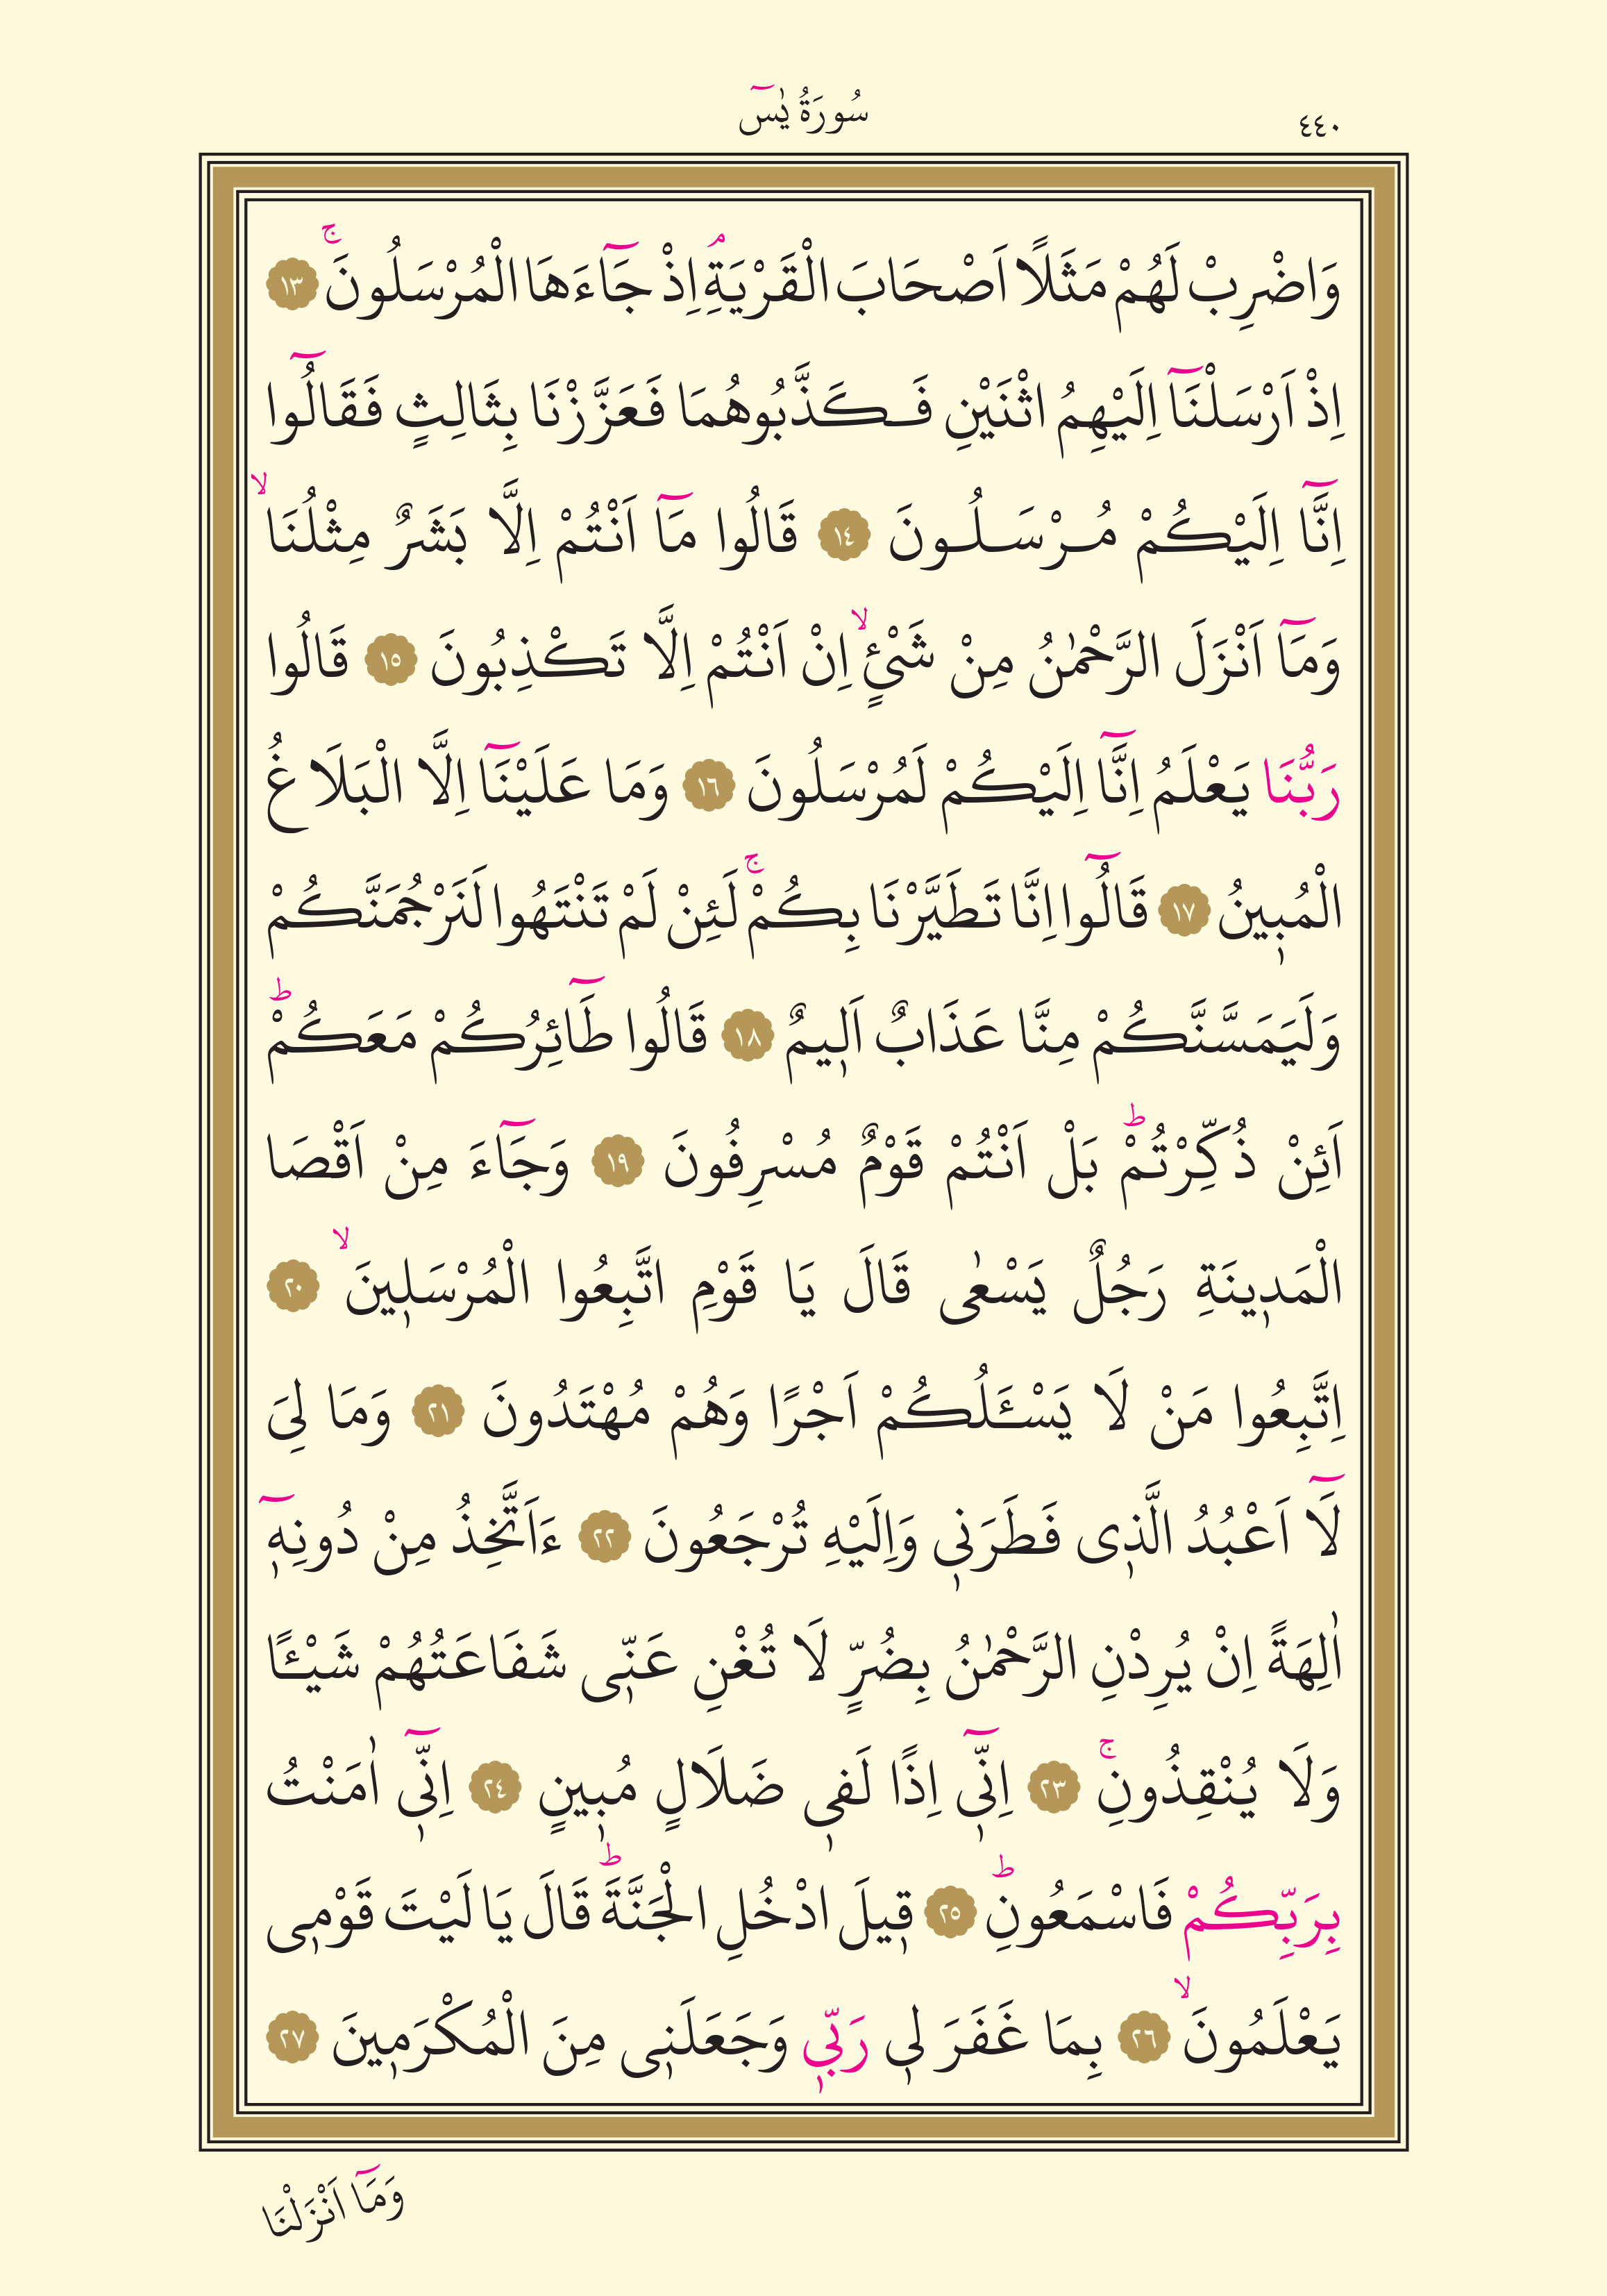 ٤٤٠
سُورَةُ يٰسٓ
وَاضْرِبْ لَهُمْ مَثَلًا اَصْحَابَ الْقَرْيَةِۢ اِذْ جَٓاءَهَا الْمُرْسَلُونَۚ ١٣
اِذْ اَرْسَلْنَٓا اِلَيْهِمُ اثْنَيْنِ فَكَذَّبُوهُمَا فَعَزَّزْنَا بِثَالِثٍ فَقَالُٓوا
اِنَّٓا اِلَيْكُمْ مُرْسَلُونَ ١٤ قَالُوا مَٓا اَنْتُمْ اِلَّا بَشَرٌ مِثْلُنَاۙ
وَمَٓا اَنْزَلَ الرَّحْمٰنُ مِنْ شَيْئٍۙ اِنْ اَنْتُمْ اِلَّا تَكْذِبُونَ ١٥ قَالُوا
رَبُّنَا يَعْلَمُ اِنَّٓا اِلَيْكُمْ لَمُرْسَلُونَ ١٦ وَمَا عَلَيْنَٓا اِلَّا الْبَلَاغُ
الْمُب۪ينُ ١٧ قَالُٓوا اِنَّا تَطَيَّرْنَا بِكُمْۚ لَئِنْ لَمْ تَنْتَهُوا لَنَرْجُمَنَّكُمْ
وَلَيَمَسَّنَّكُمْ مِنَّا عَذَابٌ اَل۪يمٌ ١٨ قَالُوا طَٓائِرُكُمْ مَعَكُمْۜ
اَئِنْ ذُكِّرْتُمْۜ بَلْ اَنْتُمْ قَوْمٌ مُسْرِفُونَ ١٩ وَجَٓاءَ مِنْ اَقْصَا
الْمَد۪ينَةِ رَجُلٌ يَسْعٰى قَالَ يَا قَوْمِ اتَّبِعُوا الْمُرْسَل۪ينَۙ ٢٠
اِتَّبِعُوا مَنْ لَا يَسْـَٔلُكُمْ اَجْرًا وَهُمْ مُهْتَدُونَ ٢١ وَمَا لِيَ
لَٓا اَعْبُدُ الَّذ۪ى فَطَرَن۪ى وَاِلَيْهِ تُرْجَعُونَ ٢٢ ءَاَتَّخِذُ مِنْ دُونِه۪ٓ
اٰلِهَةً اِنْ يُرِدْنِ الرَّحْمٰنُ بِضُرٍّ لَا تُغْنِ عَنّ۪ى شَفَاعَتُهُمْ شَيْـًٔا
وَلَا يُنْقِذُونِۚ ٢٣ اِنّ۪ٓى اِذًا لَف۪ى ضَلَالٍ مُب۪ينٍ ٢٤ اِنّ۪ٓى اٰمَنْتُ
بِرَبِّكُمْ فَاسْمَعُونِۜ ٢٥ ق۪يلَ ادْخُلِ الْجَنَّةَۜ قَالَ يَا لَيْتَ قَوْم۪ى
يَعْلَمُونَۙ ٢٦ بِمَا غَفَرَ ل۪ى رَبّ۪ى وَجَعَلَن۪ى مِنَ الْمُكْرَم۪ينَ ٢٧
وَمَٓا اَنْزَلْنَا